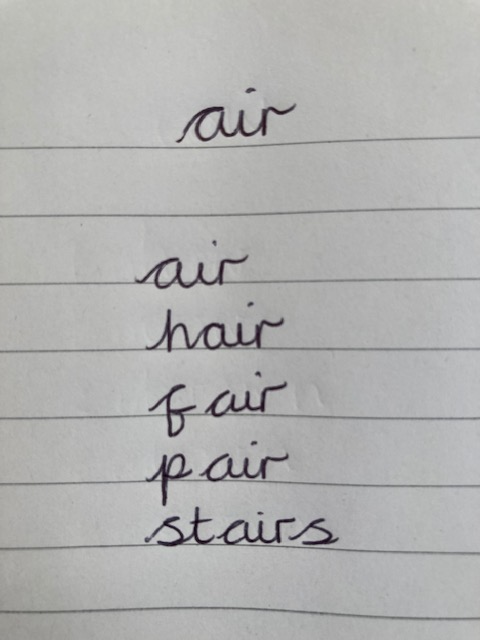 air
air
hair
fair
pair
stairs